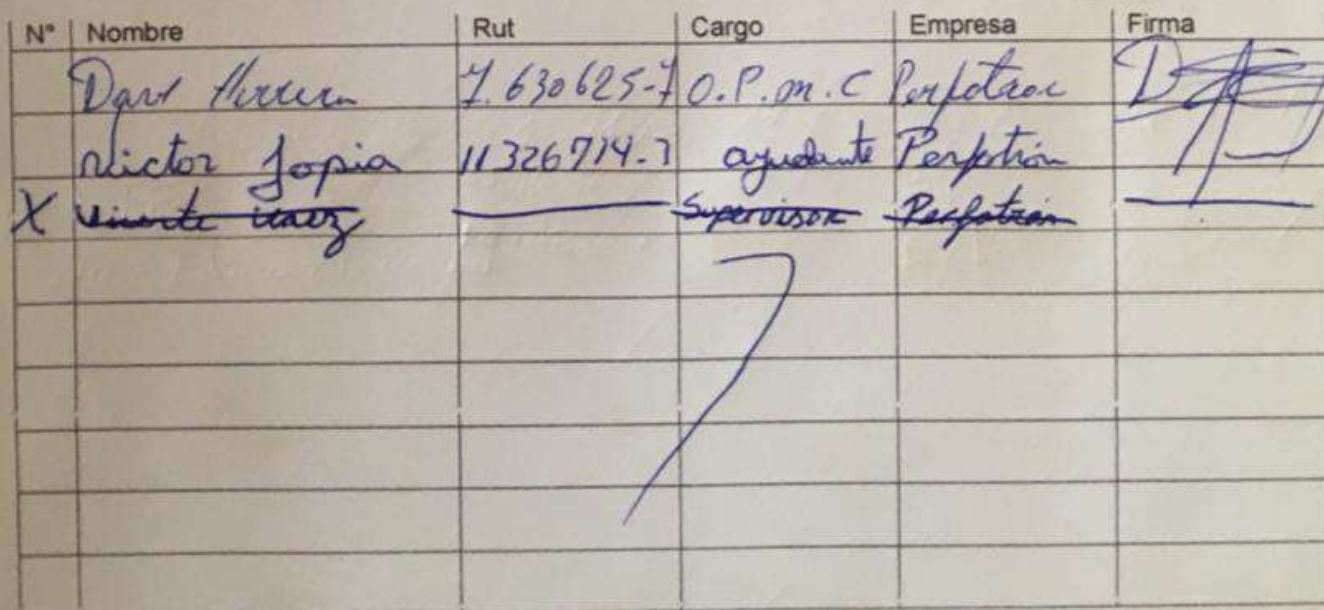 N° Nombre Rut Cargo Empresa Firma
Herrera 7.630625-7 O.P.M.C
Victor Jopia 11326714-7 ayudante Perfotrón
X Supervisor Perfotrón